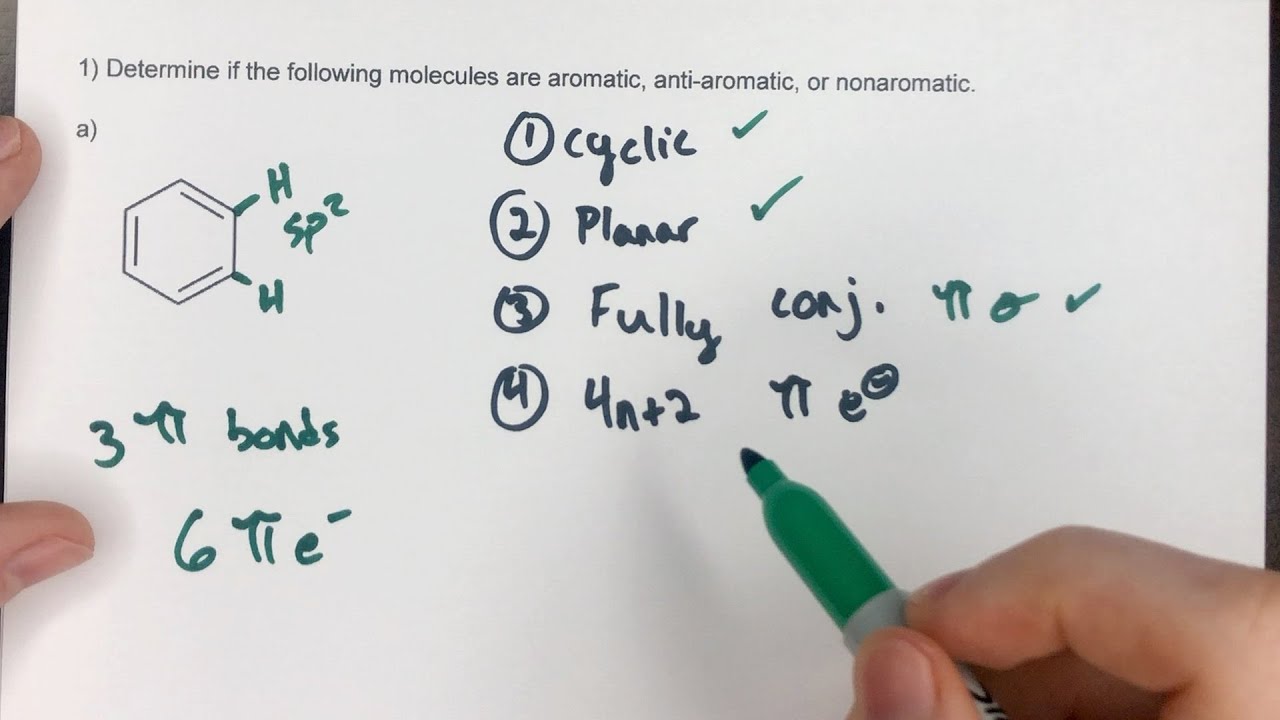 1) Determine if the following molecules are aromatic, anti-aromatic, or nonaromatic.
a)
① cyclic ✓
H
sp²
H
② Planar ✓
③ Fully conj. π σ ✓
④ 4n+2 π e⊖
3 π bonds
6 π e⁻